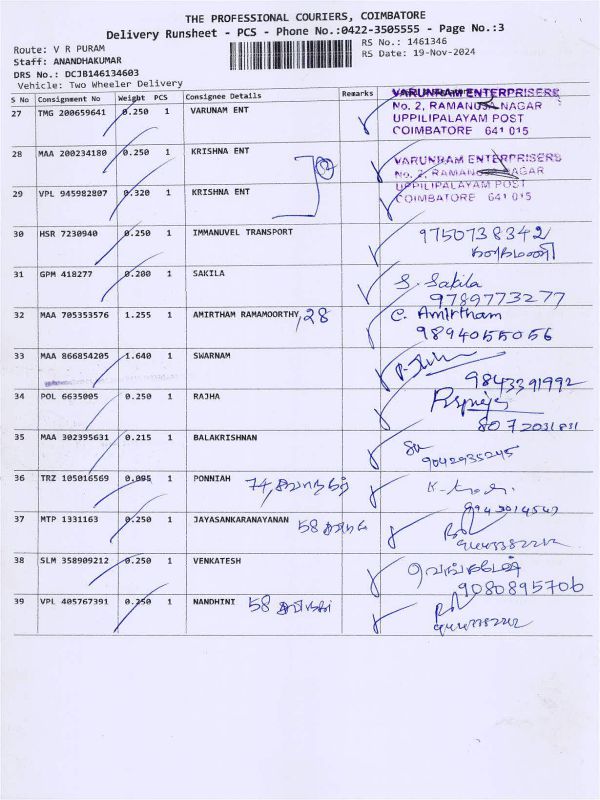 THE PROFESSIONAL COURIERS, COIMBATORE
Delivery Runsheet - PCS - Phone No.:0422-3505555 - Page No.:3
Route: V R PURAM
RS No.: 1461346
Staff: ANANDHAKUMAR
RS Date: 19-Nov-2024
DRS No.: DCJB146134603
Vehicle: Two Wheeler Delivery
S No Consignment No Weight PCS Consignee Details Remarks
27 TMG 200659641 0.250 1 VARUNAM ENT
VARUNRAM ENTERPRISERS
No. 2, RAMANUJA NAGAR
UPPILIPALAYAM POST
COIMBATORE 641 015
28 MAA 200234180 0.250 1 KRISHNA ENT
VARUNRAM ENTERPRISERS
No. 2, RAMANUJA NAGAR
UPPILIPALAYAM POST
COIMBATORE 641 015
29 VPL 945982807 0.320 1 KRISHNA ENT
30 HSR 7230940 0.250 1 IMMANUVEL TRANSPORT 9750738342
31 GPM 418277 0.200 1 SAKILA S. Sakila
9789773277
32 MAA 705353576 1.255 1 AMIRTHAM RAMAMOORTHY, 28 C. Amirtham
9894055056
33 MAA 866854205 1.640 1 SWARNAM
9843391992
34 POL 6635005 0.250 1 RAJHA
8072031831
35 MAA 302395631 0.215 1 BALAKRISHNAN
9042935245
36 TRZ 105016569 0.095 1 PONNIAH 74,
37 MTP 1331163 0.250 1 JAYASANKARANAYANAN 58
38 SLM 358909212 0.250 1 VENKATESH வெங்கடேஷ்
9080895706
39 VPL 405767391 0.250 1 NANDHINI 58